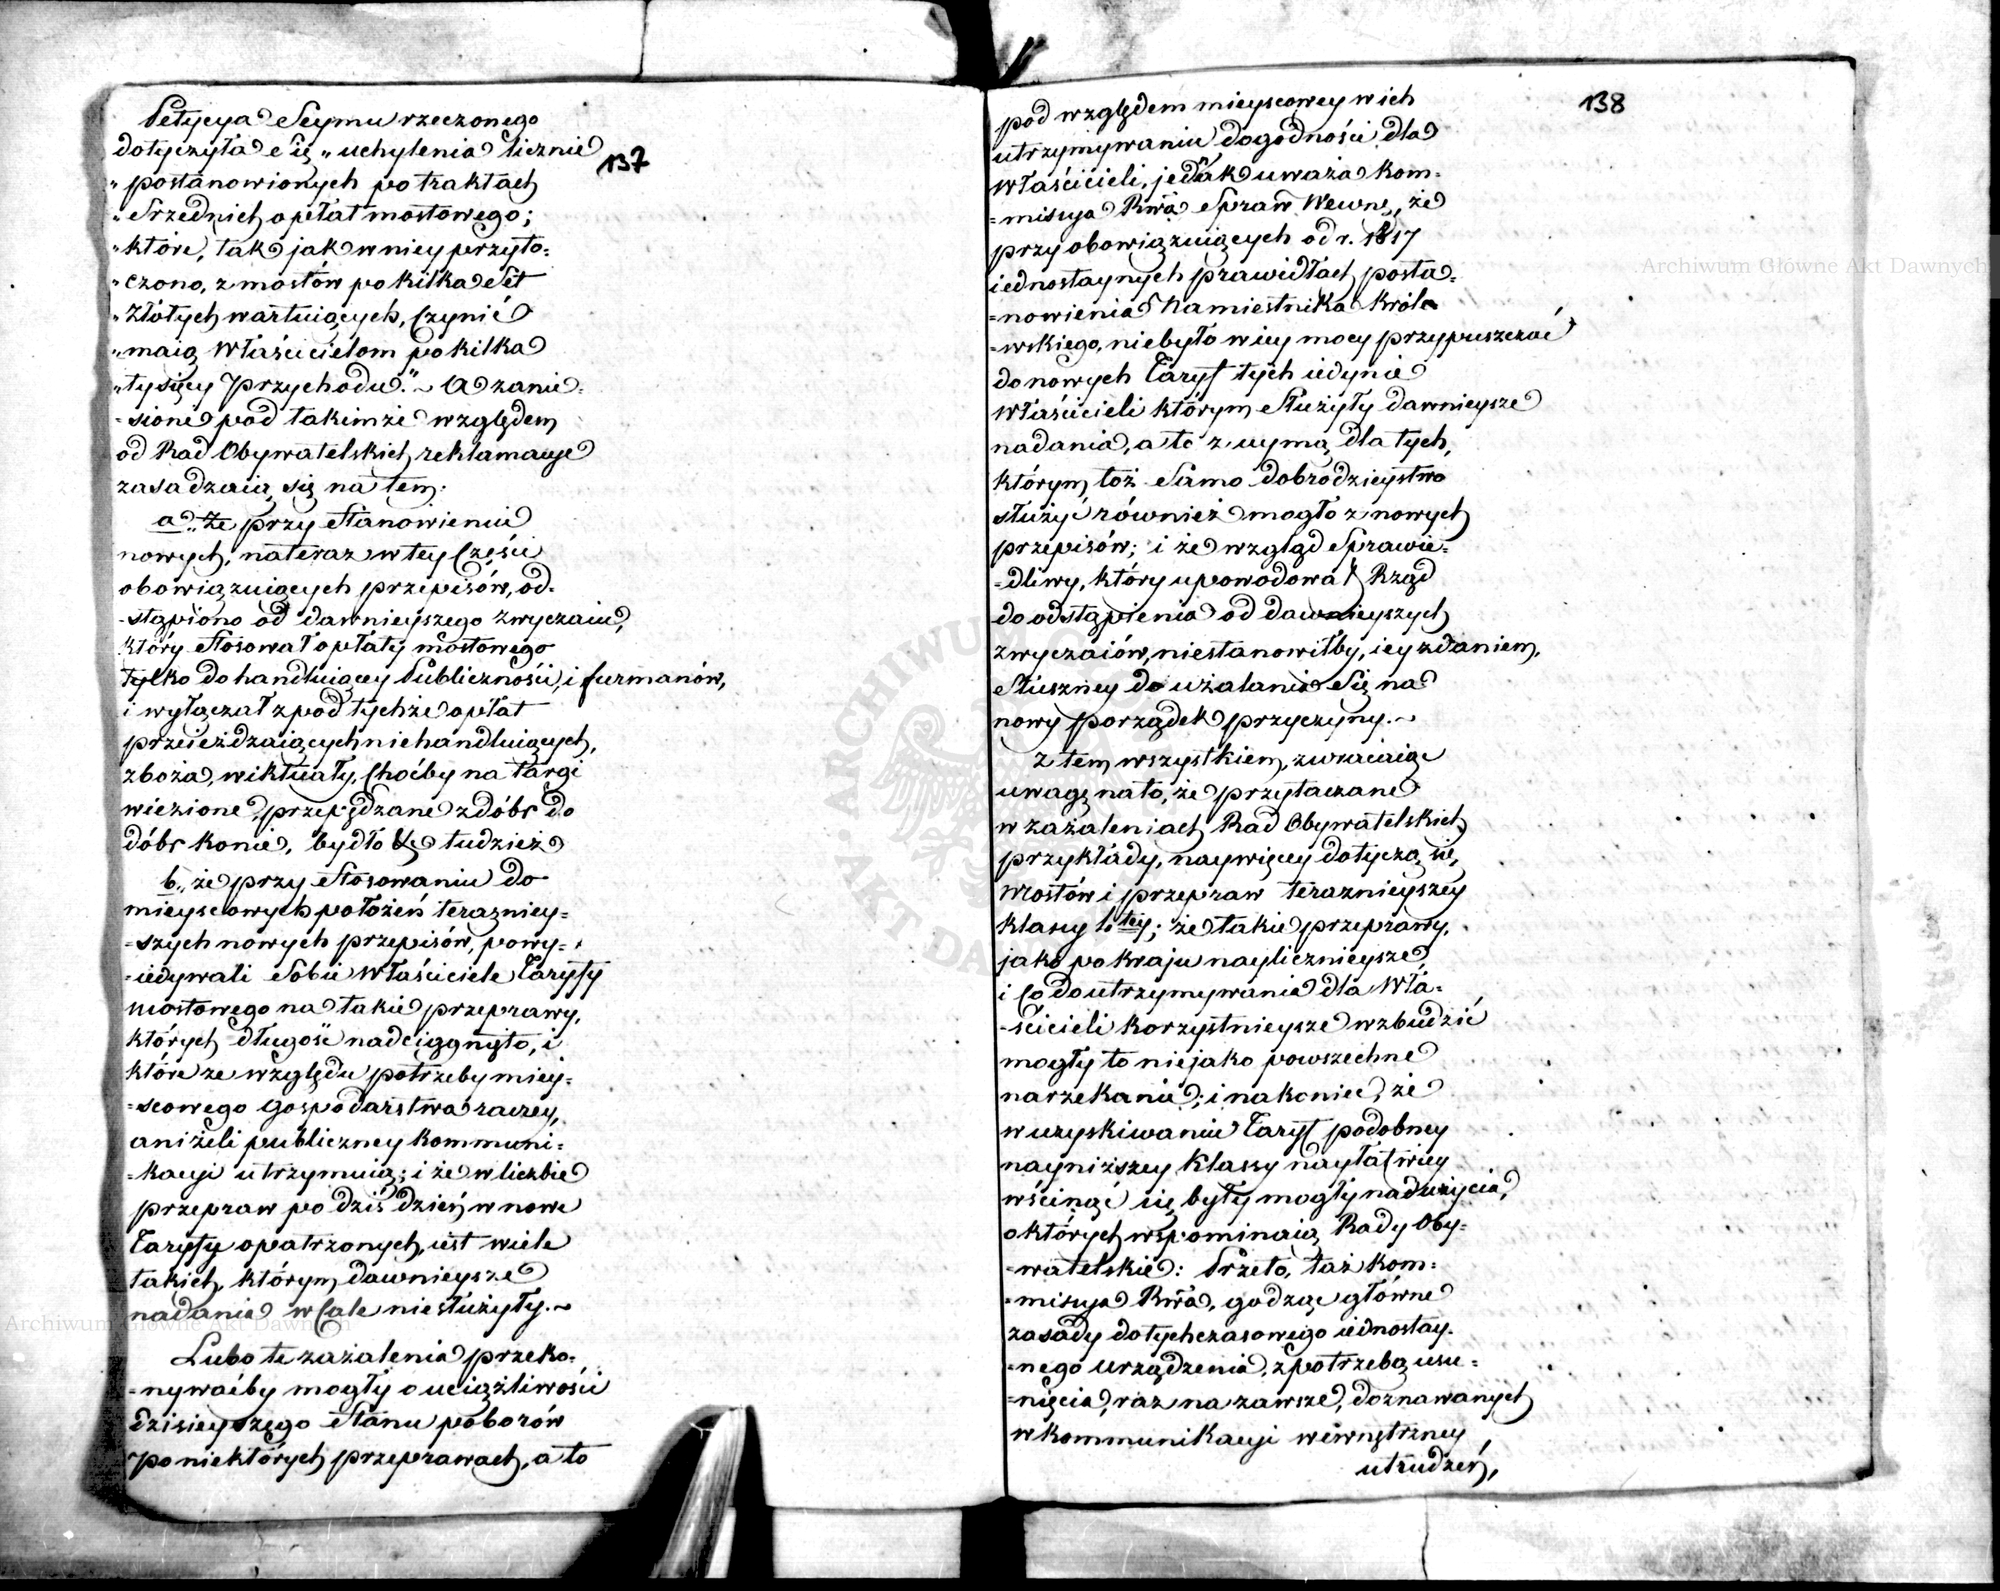 137
Petycya Seymu rzeczonego
dotyczyła się „uchylenia licznie
„postanowionych po traktach
„Srzednich opłat mostowego;
„które, tak jak w niey przyto=
„czono, z mostów po kilka Set
„Złotych wartuiących, czynić
„maią Właścicielom po kilka
„tysięcy przychodu." ~ A zanie=
=sione pod takimże względem
od Rad Obywatelskich reklamacye
zasadzaią się na tem:
a„ że przy Stanowieniu
nowych, nateraz w tey Części
obowiązuiących przepisów, od=
=stąpiono od dawnieyszego zwyczaiu,
który Stosował opłaty mostowego
tylko do handluiącey Publiczności, i furmanów,
i wyłączał z pod tychże opłat
przeieżdzaiących niehandluiących,
zboża, wiktuały, Choćby na targi
wiezione, przepędzane z dóbr do
dóbr konie, bydło &c tudzież
b„ że przy Stosowaniu do
mieyscowych położeń teraźniey=
=szych nowych przepisów, powy=
=iedywali Sobie Właściciele Taryfy
mostowego na takie przeprawy,
których długość nadciągnięto, i
które ze względu potrzeby miey=
=scowego gospodarstwa raczey,
aniżeli publiczney kommuni=
=kacyi utrzymuią; i że w liczbie
przepraw po dziś dzień w nowe
Taryfy opatrzonych, iest wiele
takich, którym dawnieysze
nadania wCale niesłużyły. ~
Lubo te zażalenia przeko=
=nywaćby mogły o uciążliwości
dzisieyszego Stanu poborów
po niektórych przeprawach, a to
138
pod względem mieyscowey w ich
utrzymywaniu dogodności dla
Właścicieli, jednak uważa Kom=
=misya Rwa Spraw Wewnę, że
przy obowiązuiących od r. 1817
iednostaynych prawidłach posta=
=nowienia Namiestnika Króle
=wskiego, niebyło w iey mocy przypuszczać
do nowych Taryf tych iedynie
Właścicieli którym Służyły dawnieysze
nadania, a to z uymą dla tych,
którym toż Samo dobrodzieystwo
służyć również mogło z nowych
przepisów; i że wzgląd Sprawie=
=dliwy, który upowodował Rząd
do odstąpienia od dawnieyszych
zwyczaiów, niestanowiłby, iey zdaniem,
Słuszney do użalania Się na
nowy porządek przyczyny. ~
Z tem wszystkiem, zwracaiąc
uwagę na to, że przytaczane
w zażaleniach Rad Obywatelskich
przykłady, naywięcey dotyczą się,
Mostów i przepraw teraznieyszey
klassy 1tey; że takie przeprawy,
jako po kraju naylicznieysze,
i Co do utrzymywania dla Wła=
=ścicieli korzystnieysze wzbudzić
mogły to niejako powszechne
narzekanie; i nakoniec, że
w uzyskiwaniu Taryf podobney
nayniższey Klassy nayłatwiey
wścinąć się były mogły nadużycia,
o których wspominaią Rady Oby=
=watelskie: Przeto, taż Kom=
=misya Rwa, godząc główne
zasady dotychczasowego iednostay=
=nego urządzenia, z potrzebą usu=
=nięcia, raz na zawsze, doznawanych
w kommunikacyi wewnętrzney
utrudzeń,
Archiwum Główne Akt Dawnych
Archiwum Główne Akt Dawnych